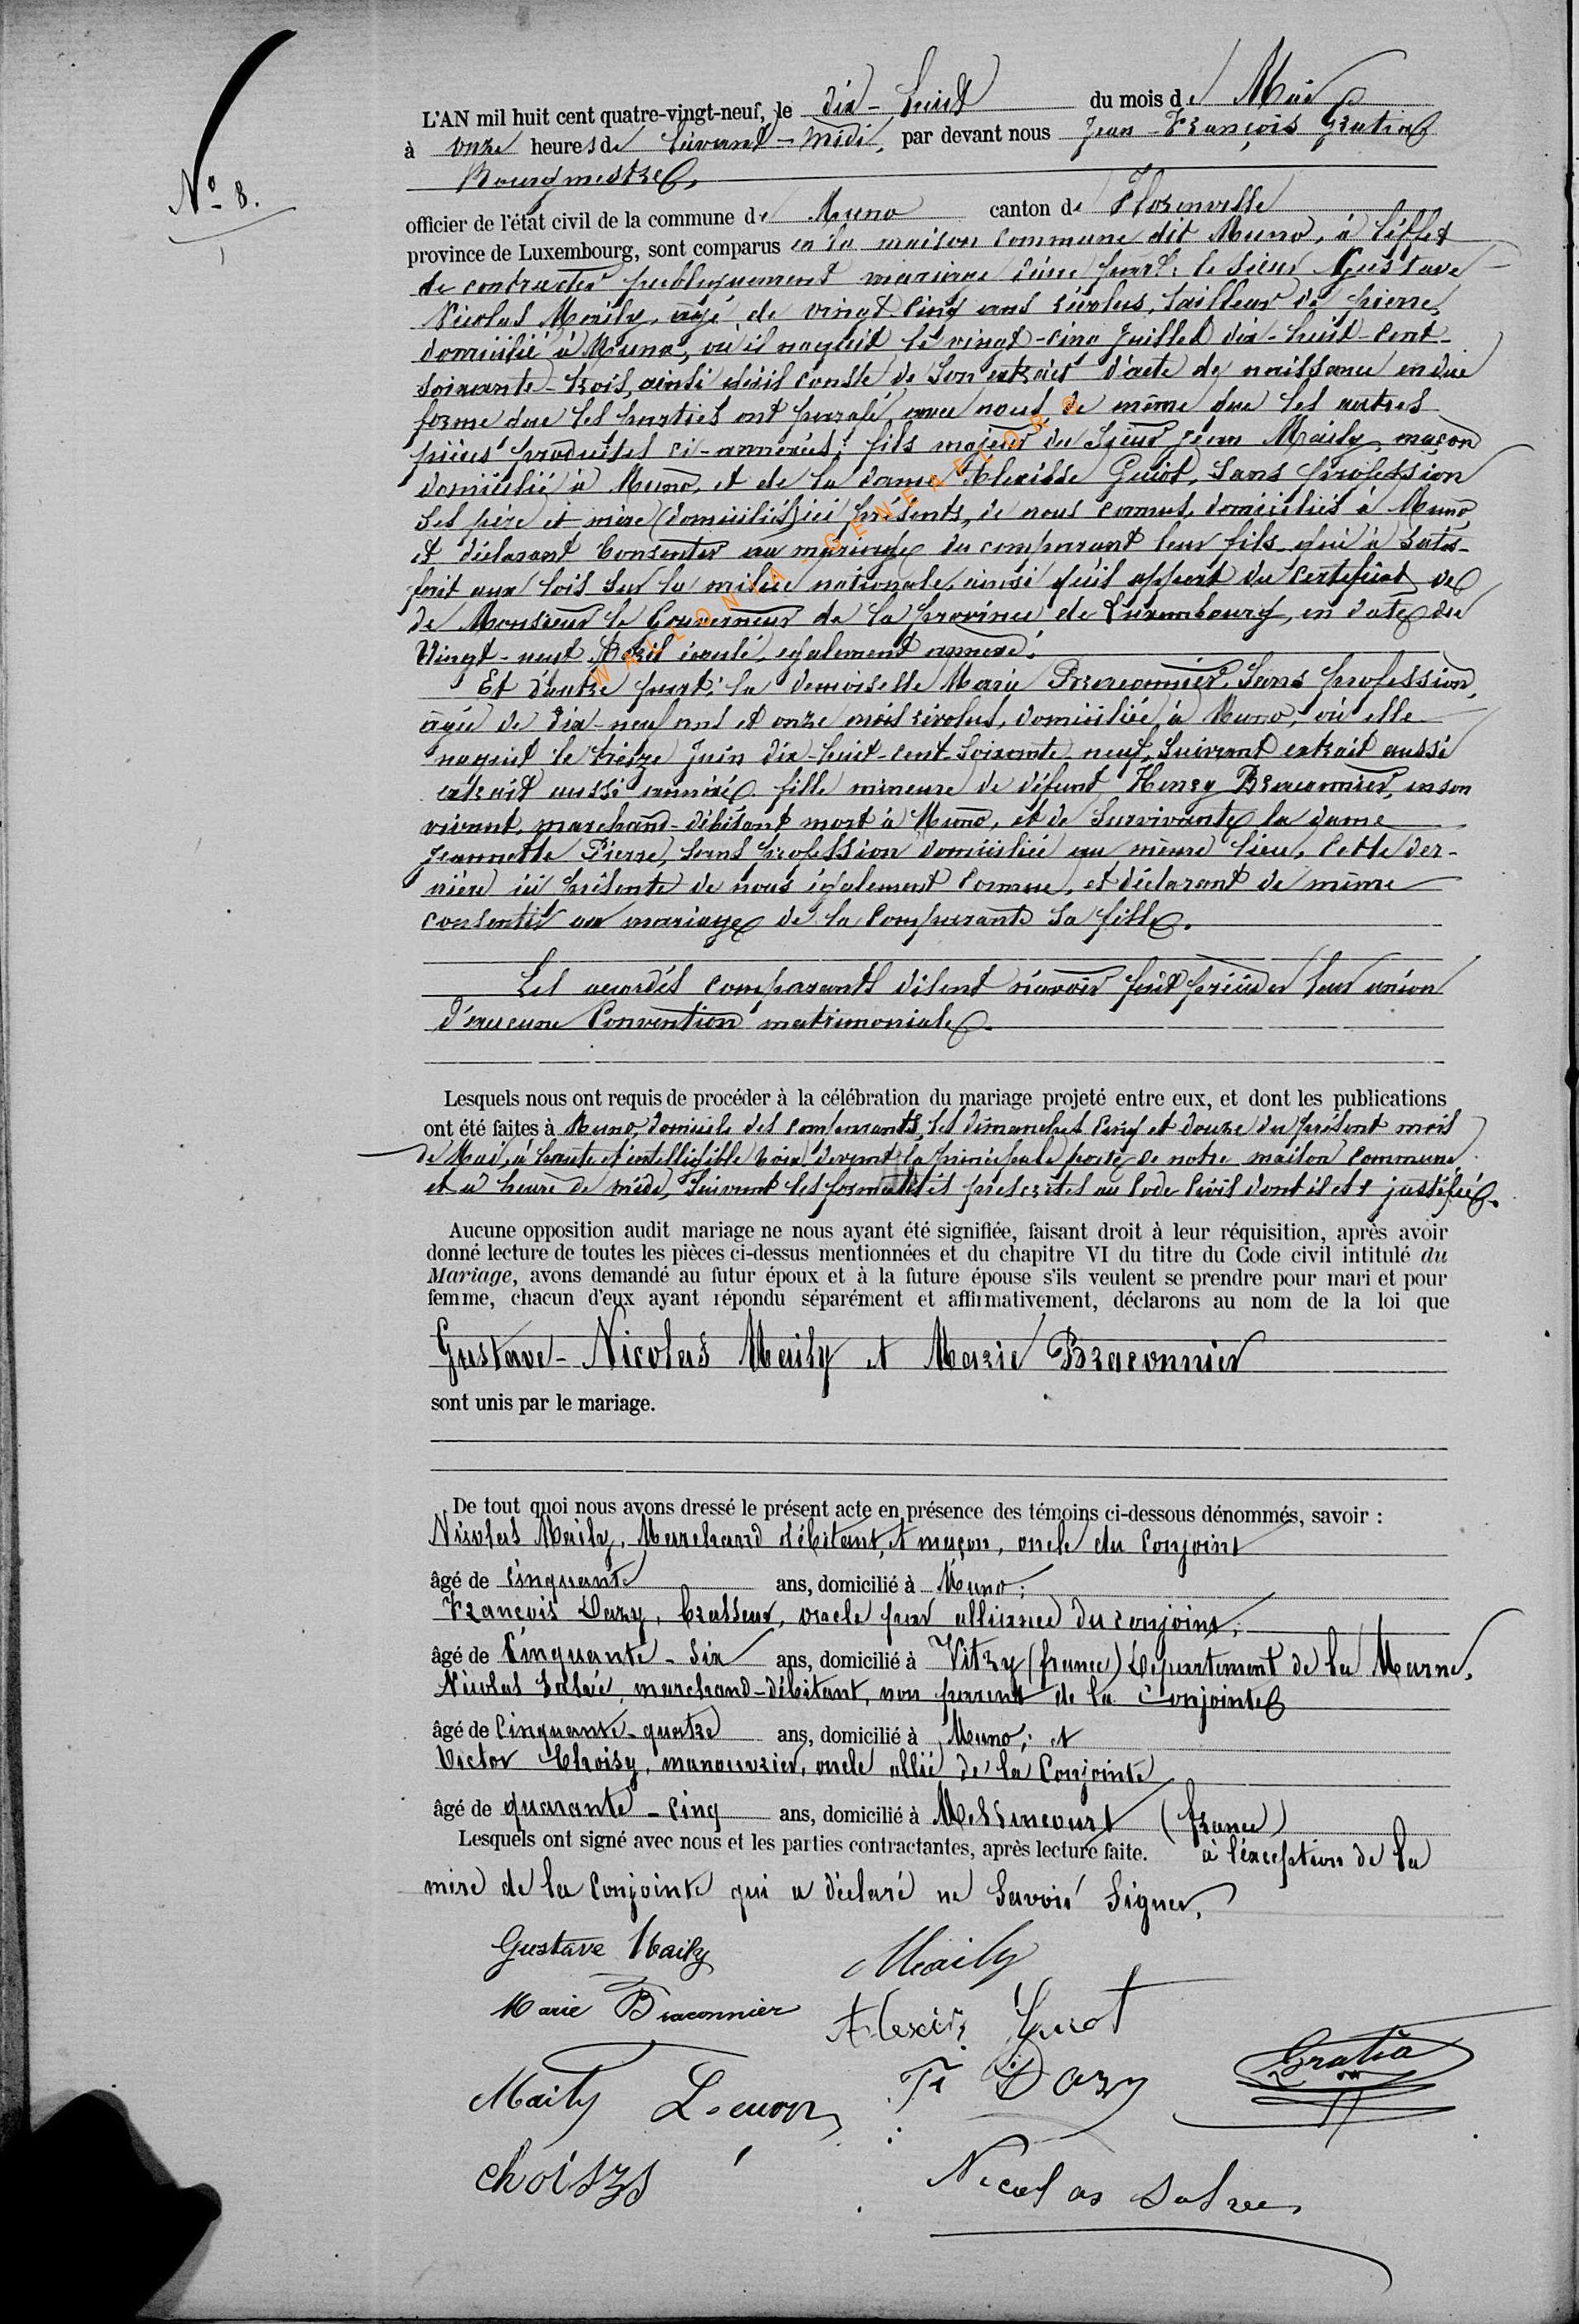 L'AN mil huit cent quatre-vingt-neuf, le dix-huit du mois de Mai
à onze heures de l'avant-midi, par devant nous Jean-François Gratia
Bourgmestre,
N° 8.
officier de l'état civil de la commune de Muno canton de Florenville
province de Luxembourg, sont comparus en la maison commune dit Muno, à l'effet
de contracter publiquement mariage d'une part: le sieur Gustave
Nicolas Maily, âgé de vingt cinq ans révolus, tailleur de pierre,
domicilié à Muno, où il naquit le vingt-cinq Juillet dix-huit-cent-
soixante-trois, ainsi qu'il conste de son extrait d'acte de naissance en due
forme que les parties ont parafé avec nous de même que les autres
pièces produites ci-annexées; fils majeur du Sieur Jean Maily, maçon
domicilié à Muno, et de la dame Alexisse Guiot, sans profession
ses père et mère (domiciliés) ici présents, de nous connus, domiciliés à Muno
et déclarant consentir au mariage du comparant leur fils qui a satis-
fait aux lois sur la milice nationale, ainsi qu'il appert du certificat de
de Monsieur le Gouverneur de la province de Luxembourg, en date du
Vingt-neuf Avril écoulé, également annexé.
WALLONIA-GENEAFLOR@
Et d'autre part: la demoiselle Marie Braconnier, sans profession,
âgée de dix-neuf ans et onze mois révolus, domiciliée à Muno, où elle
naquit le treize Juin dix-huit-cent-soixante-neuf, suivant extrait aussi
extrait aussi annexé. fille mineure de défunt Henry Braconnier, en son
vivant, marchand-débitant mort à Muno, et de survivante la dame
Jeannette Pierre, sans profession domiciliée au même lieu, cette der-
nière ici présente de nous également connue, et déclarant de même
consentir au mariage de la comparante sa fille.
Les accordés comparants disent n'avoir fait précéder leur union
d'aucune Convention matrimoniale.
Lesquels nous ont requis de procéder à la célébration du mariage projeté entre eux, et dont les publications
ont été faites à Muno, domicile des comparants, les dimanches cinq et douze du présent mois
de Mai, à haute et intelligible voix devant la principale porte de notre maison commune,
et à heure de midi, suivant les formalités prescrites au Code Civil dont il est justifié.
Aucune opposition audit mariage ne nous ayant été signifiée, faisant droit à leur réquisition, après avoir
donné lecture de toutes les pièces ci-dessus mentionnées et du chapitre VI du titre du Code civil intitulé du
Mariage, avons demandé au futur époux et à la future épouse s'ils veulent se prendre pour mari et pour
femme, chacun d'eux ayant répondu séparément et affirmativement, déclarons au nom de la loi que
Gustave-Nicolas Maily et Marie Braconnier
sont unis par le mariage.
De tout quoi nous avons dressé le présent acte en présence des témoins ci-dessous dénommés, savoir :
Nicolas Maily, Marchand débitant, et maçon, oncle du conjoint
âgé de cinquante ans, domicilié à Muno;
François Dazy, brasseur, oncle par alliance du conjoint;
âgé de Cinquante-six ans, domicilié à Vitry (france) Département de la Marne,
Nicolas Salzée, marchand-débitant, non parent de la Conjointe
âgé de Cinquante-quatre ans, domicilié à Muno; et
Victor Choisy, manouvrier, oncle allié de la Conjointe
âgé de quarante-cinq ans, domicilié à Messincourt (france)
Lesquels ont signé avec nous et les parties contractantes, après lecture faite. à l'exception de la
mère de la Conjointe qui a déclaré ne savoir signer,
Gustave Maily Maily
Marie Braconnier Alexis Guiot
Maily Fs Dazy Gratia
choisys Nicolas Salzee